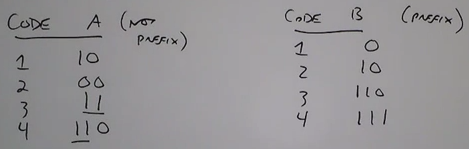 CODE A (NOT PREFIX)
1 10
2 00
3 11
4 110
CODE B (PREFIX)
1 0
2 10
3 110
4 111